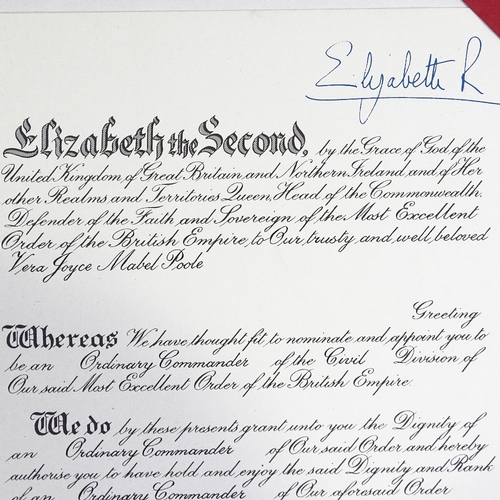 Elizabeth R
Elizabeth the Second, by the Grace of God, of the
United Kingdom of Great Britain and Northern Ireland and of Her
other Realms and Territories Queen, Head of the Commonwealth,
Defender of the Faith and Sovereign of the Most Excellent
Order of the British Empire, to Our trusty and well beloved
Vera Joyce Mabel Poole
Greeting
Whereas We have thought fit to nominate and appoint you to
be an Ordinary Commander of the Civil Division of
Our said Most Excellent Order of the British Empire.
We do by these presents grant unto you the Dignity of
an Ordinary Commander of Our said Order and hereby
authorise you to have hold and enjoy the said Dignity and Rank
of an Ordinary Commander of Our aforesaid Order